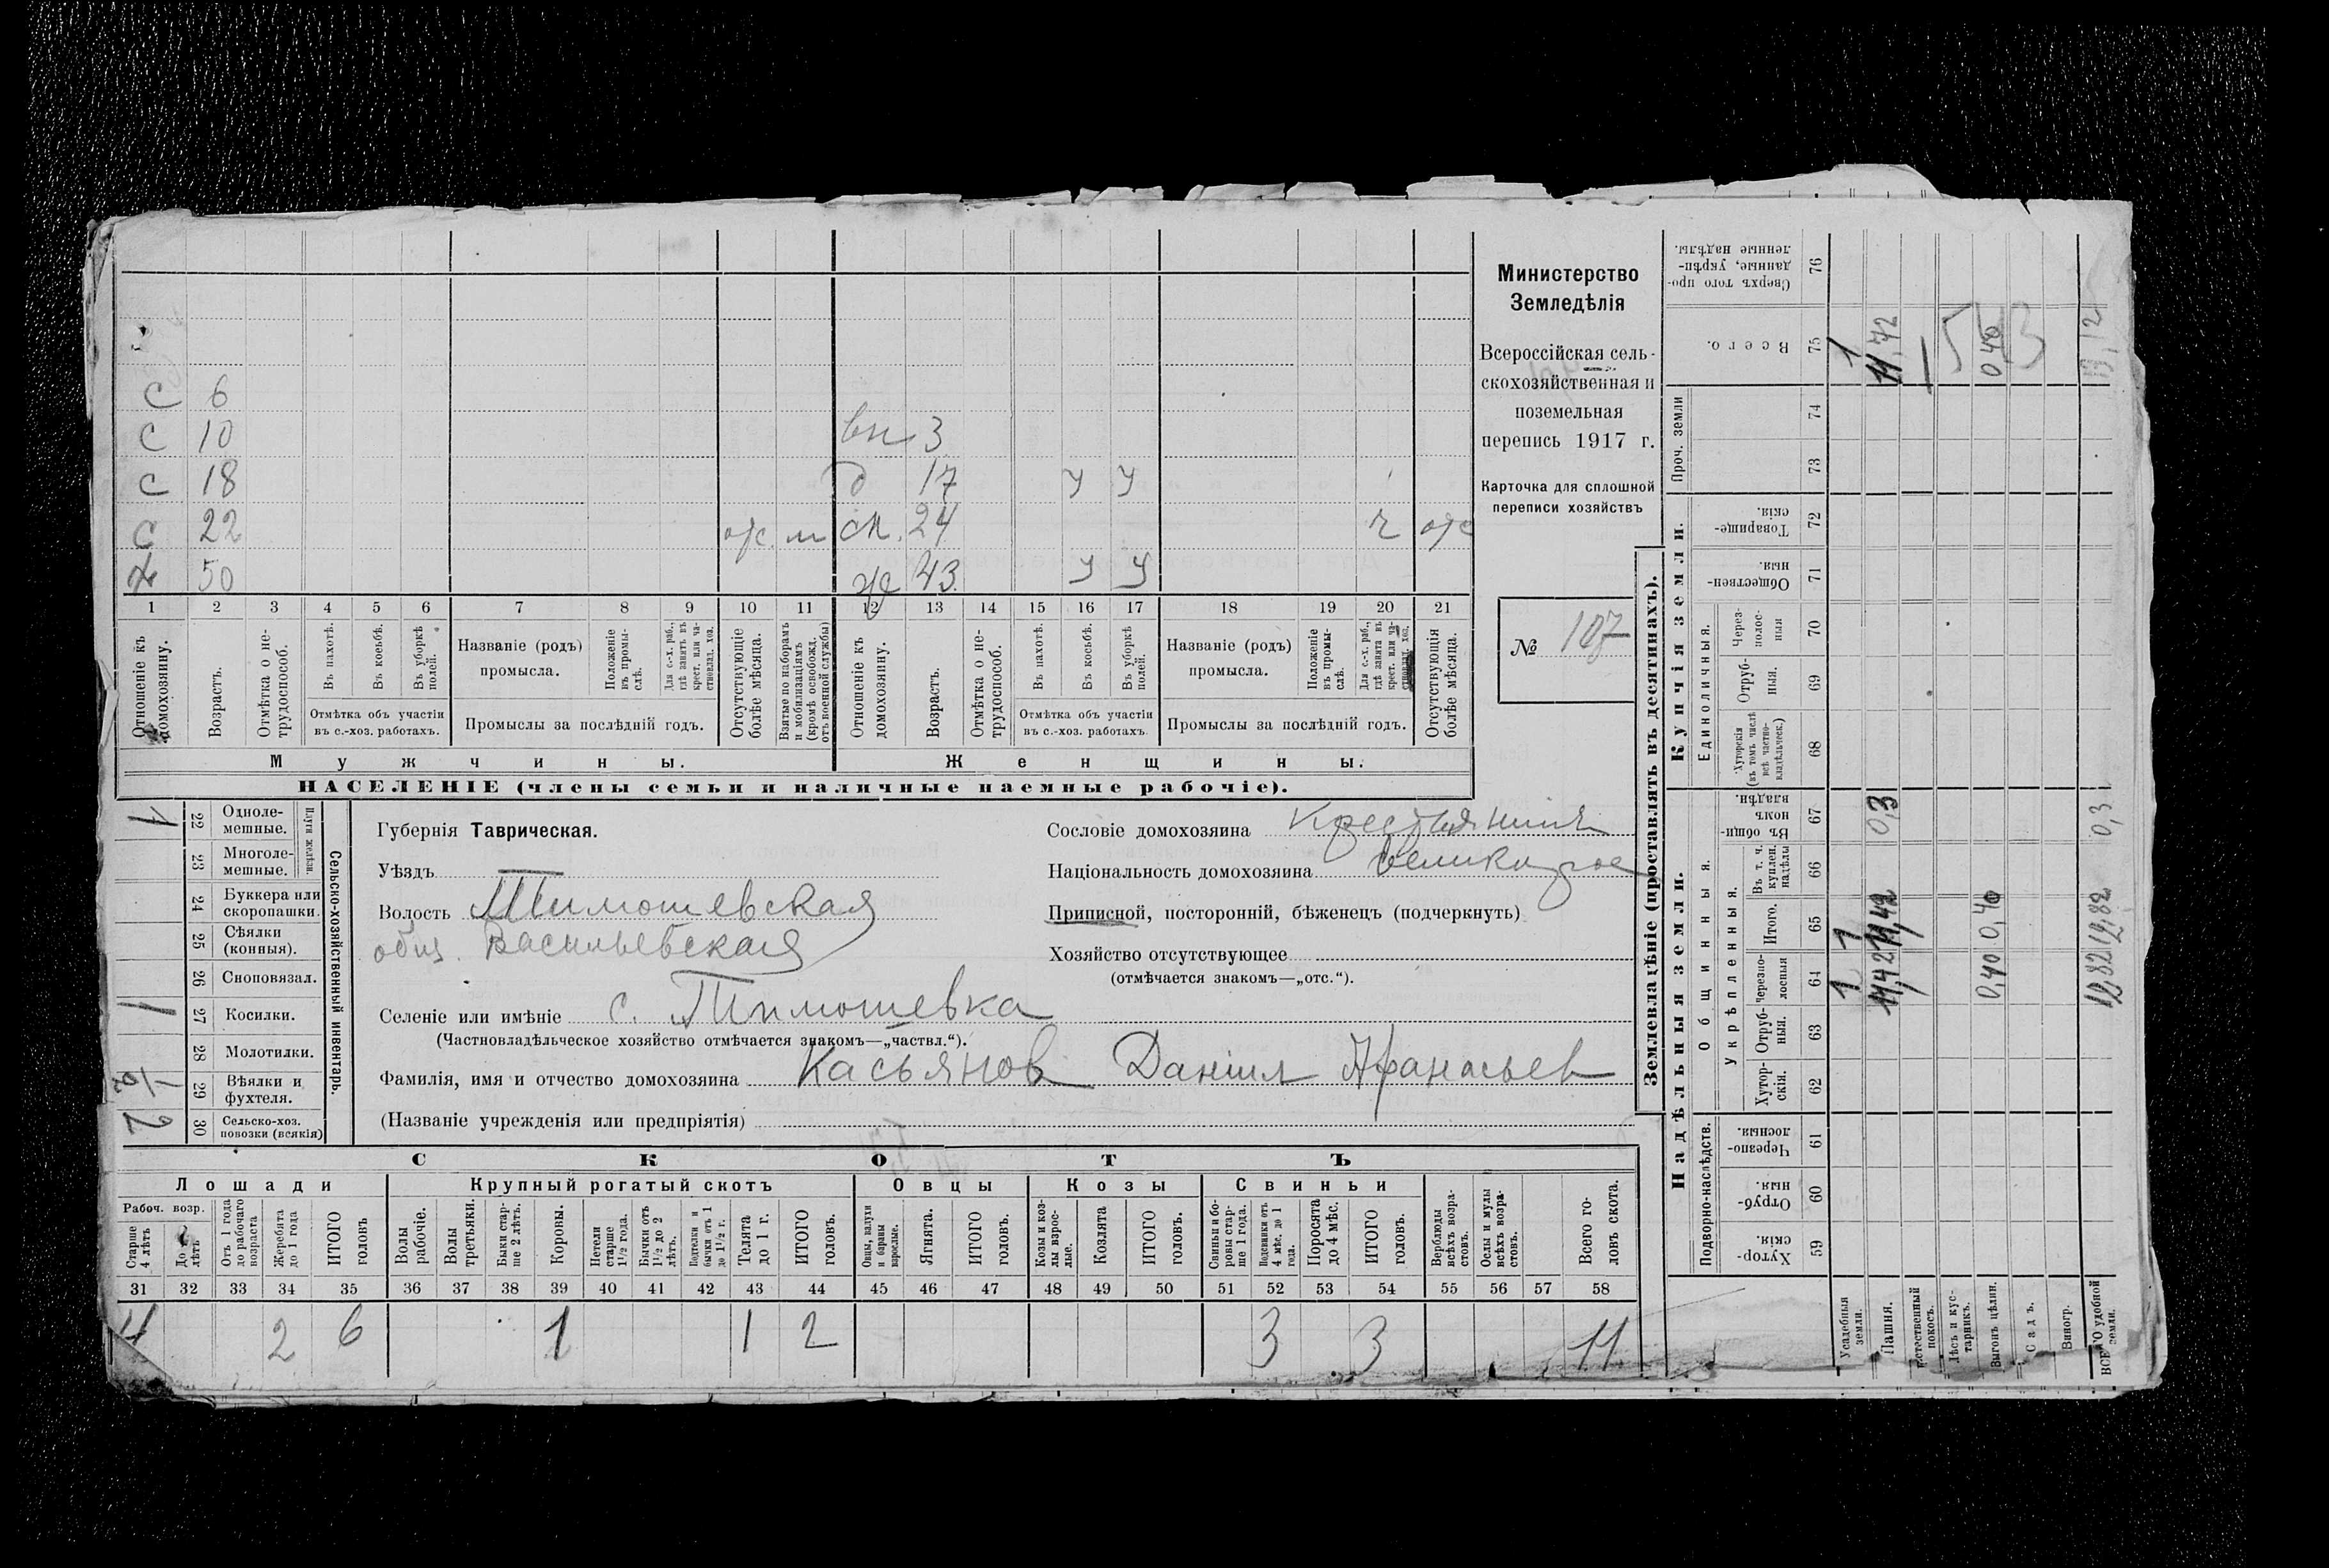 С 6
С 10 вн 3
С 18 д 17 у у
С 22 отс. м сн. 24 ч отс
х 50 ж 43 у у
1 2 3 4 5 6 7 8 9 10 11 12 13 14 15 16 17 18 19 20 21
Отношеніе къ домохозяину.
Возрастъ.
Отмѣтка о нетрудоспособ.
Въ пахотѣ.
Въ косьбѣ.
Въ уборкѣ полей.
Отмѣтка объ участіи
въ с.-хоз. работахъ.
Названіе (родъ)
промысла.
Положеніе въ промыслѣ.
Для с.-х. раб., гдѣ занятъ въ крест. или частновлад. хоз.
Промыслы за послѣдній годъ.
Отсутствующіе болѣе мѣсяца.
Взятые по наборамъ и мобилизаціямъ (кромѣ освобожд. отъ военной службы)
Отношеніе къ домохозяину.
Возрастъ.
Отмѣтка о нетрудоспособ.
Въ пахотѣ.
Въ косьбѣ.
Въ уборкѣ полей.
Отмѣтка объ участіи
въ с.-хоз. работахъ.
Названіе (родъ)
промысла.
Положеніе въ промыслѣ.
Для с.-х. раб., гдѣ занята въ крест. или частновлад. хоз.
Промыслы за послѣдній годъ.
Отсутствующія болѣе мѣсяца.
Мужчины.
Женщины.
НАСЕЛЕНІЕ (члены семьи и наличные наемные рабочіе).
Министерство
Земледѣлія
Всероссійская сель-
скохозяйственная и
поземельная
перепись 1917 г.
Карточка для сплошной
переписи хозяйствъ
№ 107
Сельско-хозяйственный инвентарь.
Плуги желѣзн.
1 22 Одноле-
мешные.
23 Многоле-
мешные.
24 Буккера или
скоропашки.
25 Сѣялки
(конныя).
26 Сноповязал.
1 27 Косилки.
28 Молотилки.
1/2 29 Вѣялки и
фухтеля.
2 30 Сельско-хоз.
повозки (всякія)
Губернія Таврическая.
Уѣздъ
Волость Тимошевская
общ. Васильевская
Селеніе или имѣніе с. Тимошевка
(Частновладѣльческое хозяйство отмѣчается знакомъ—„частвл.“).
Фамилія, имя и отчество домохозяина Касьянов Даніил Афанасьев
(Названіе учрежденія или предпріятія)
Сословіе домохозяина Крестьянинъ
Національность домохозяина великорос
Приписной, посторонній, бѣженецъ (подчеркнуть)
Хозяйство отсутствующее
(отмѣчается знакомъ—„отс.“).
СКОТЪ
Лошади
Крупный рогатый скотъ
Овцы
Козы
Свиньи
Рабоч. возр.
Старше 4 лѣтъ
До 4 лѣтъ
Отъ 1 года до рабочаго возраста
Жеребята до 1 года
ИТОГО головъ
Волы рабочіе.
Волы третьяки.
Быки старше 2 лѣтъ.
Коровы.
Нетели старше 1½ года.
Бычки отъ 1½ до 2 лѣтъ.
Подтелки и бычки отъ 1 до 1½ г.
Телята до 1 г.
ИТОГО головъ.
Овцы, валухи и бараны взрослые.
Ягнята.
ИТОГО головъ.
Козы и козлы взрослые.
Козлята
ИТОГО головъ.
Свиньи и боровы старше 1 года.
Подсвинки отъ 4 мѣс. до 1 года.
Поросята до 4 мѣс.
ИТОГО головъ.
Верблюды всѣхъ возрастовъ.
Ослы и мулы всѣхъ возрастовъ.
Всего головъ скота.
31 32 33 34 35 36 37 38 39 40 41 42 43 44 45 46 47 48 49 50 51 52 53 54 55 56 57 58
4 2 6 1 1 2 3 3 11
Землевладѣніе (проставлять въ десятинахъ).
Надѣльныя земли.
Купчія земли.
Проч. земли
Подворно-наслѣдств.
Общинныя.
Укрѣпленныя.
Единоличныя.
Хуторскія. 59
Отрубныя. 60
Чрезполосныя. 61
Хуторскія. 62
Отрубныя. 63
Черезполосныя 64
Итого. 65
Въ т. ч. куплен. надѣлы 66
Въ общинномъ владѣн. 67
Хуторскія (въ томъ числѣ всѣ частновладѣльческ.) 68
Отрубныя. 69
Черезполосныя 70
Общественныя. 71
Товарищескія. 72
73
74
Всего. 75
Сверхъ того проданные, укрѣпленные надѣлы. 76
Усадебныя земли. 1 1 1
Пашня. 11,42 11,42 0,3 11,72
Естественный покосъ.
Лѣсъ и кустарникъ.
Выгонъ цѣлин. 0,40 0,40 0,40
Садъ.
Виногр.
ВСЕГО удобной земли. 12,82 12,82 0,3 13,12